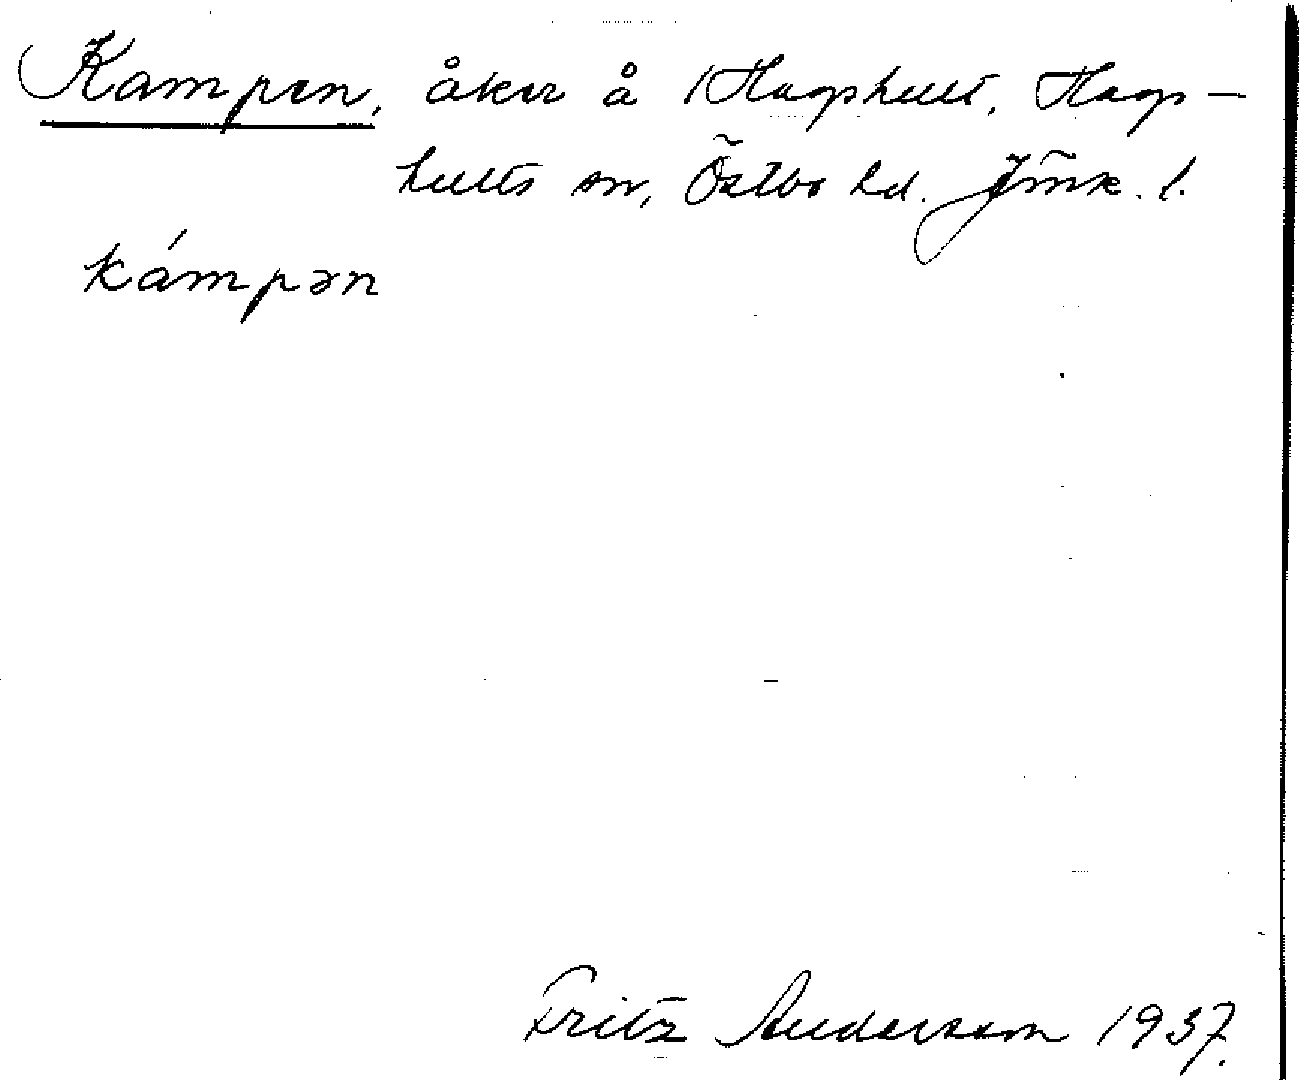 Kampen, åker å Hagshult, Hags-
hults sn, Östbo hd. Jönk. l.
kámpən
Fritz Anderson 1937.